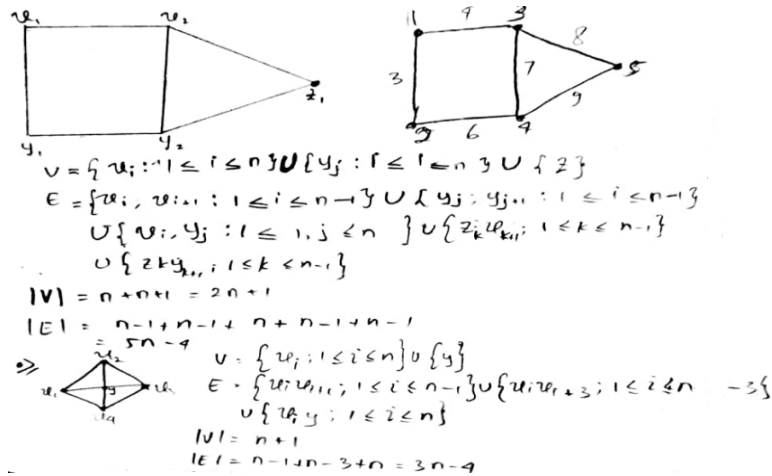 v₁ v₂
y₁ y₂ z₁
1 4 3 8
3 7 5
2 6 4 9
V = { v_i : 1 ≤ i ≤ n } ∪ { y_j : 1 ≤ i ≤ n } ∪ { z }
E = { v_i, v_{i+1} : 1 ≤ i ≤ n-1 } ∪ { y_j, y_{j+1} : 1 ≤ i ≤ n-1 }
∪ { v_i, y_j : 1 ≤ i, j ≤ n } ∪ { z_k v_{k+1} ; 1 ≤ k ≤ n-1 }
∪ { z_k y_{k+1} ; 1 ≤ k ≤ n-1 }
|V| = n + n + 1 = 2n + 1
|E| = n-1 + n-1 + n + n-1 + n-1
= 5n - 4
v₂
v₁ y
v₄
V = { v_i ; 1 ≤ i ≤ n } ∪ { y }
E = { v_i v_{i+1} ; 1 ≤ i ≤ n-1 } ∪ { v_i v_{i+3} ; 1 ≤ i ≤ n -3 }
∪ { v_i y ; 1 ≤ i ≤ n }
|V| = n + 1
|E| = n-1 + n-3 + n = 3n-4